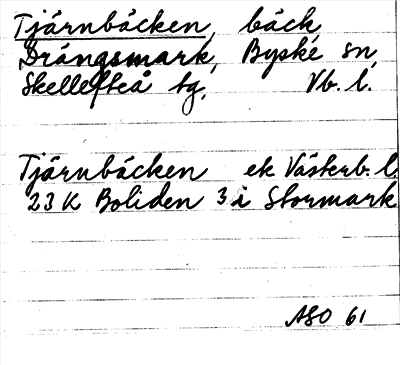 Tjärnbäcken, bäck
Drängsmark, Byske sn,
Skellefteå tg, Vb. l.
Tjärnbäcken ek Västerb. l.
23 K Boliden 3 i Stormark
ASO 61